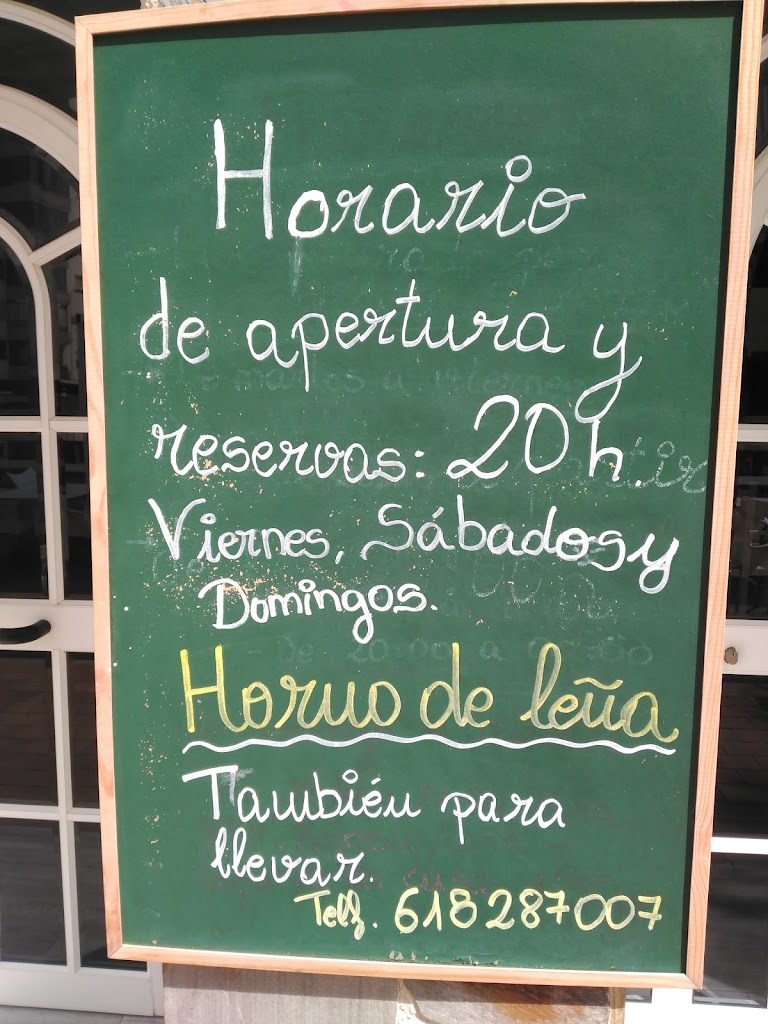 Horario
de apertura y
reservas: 20 h.
Viernes, Sábados y
Domingos.
Horno de leña
También para
llevar.
Telf. 618 287007